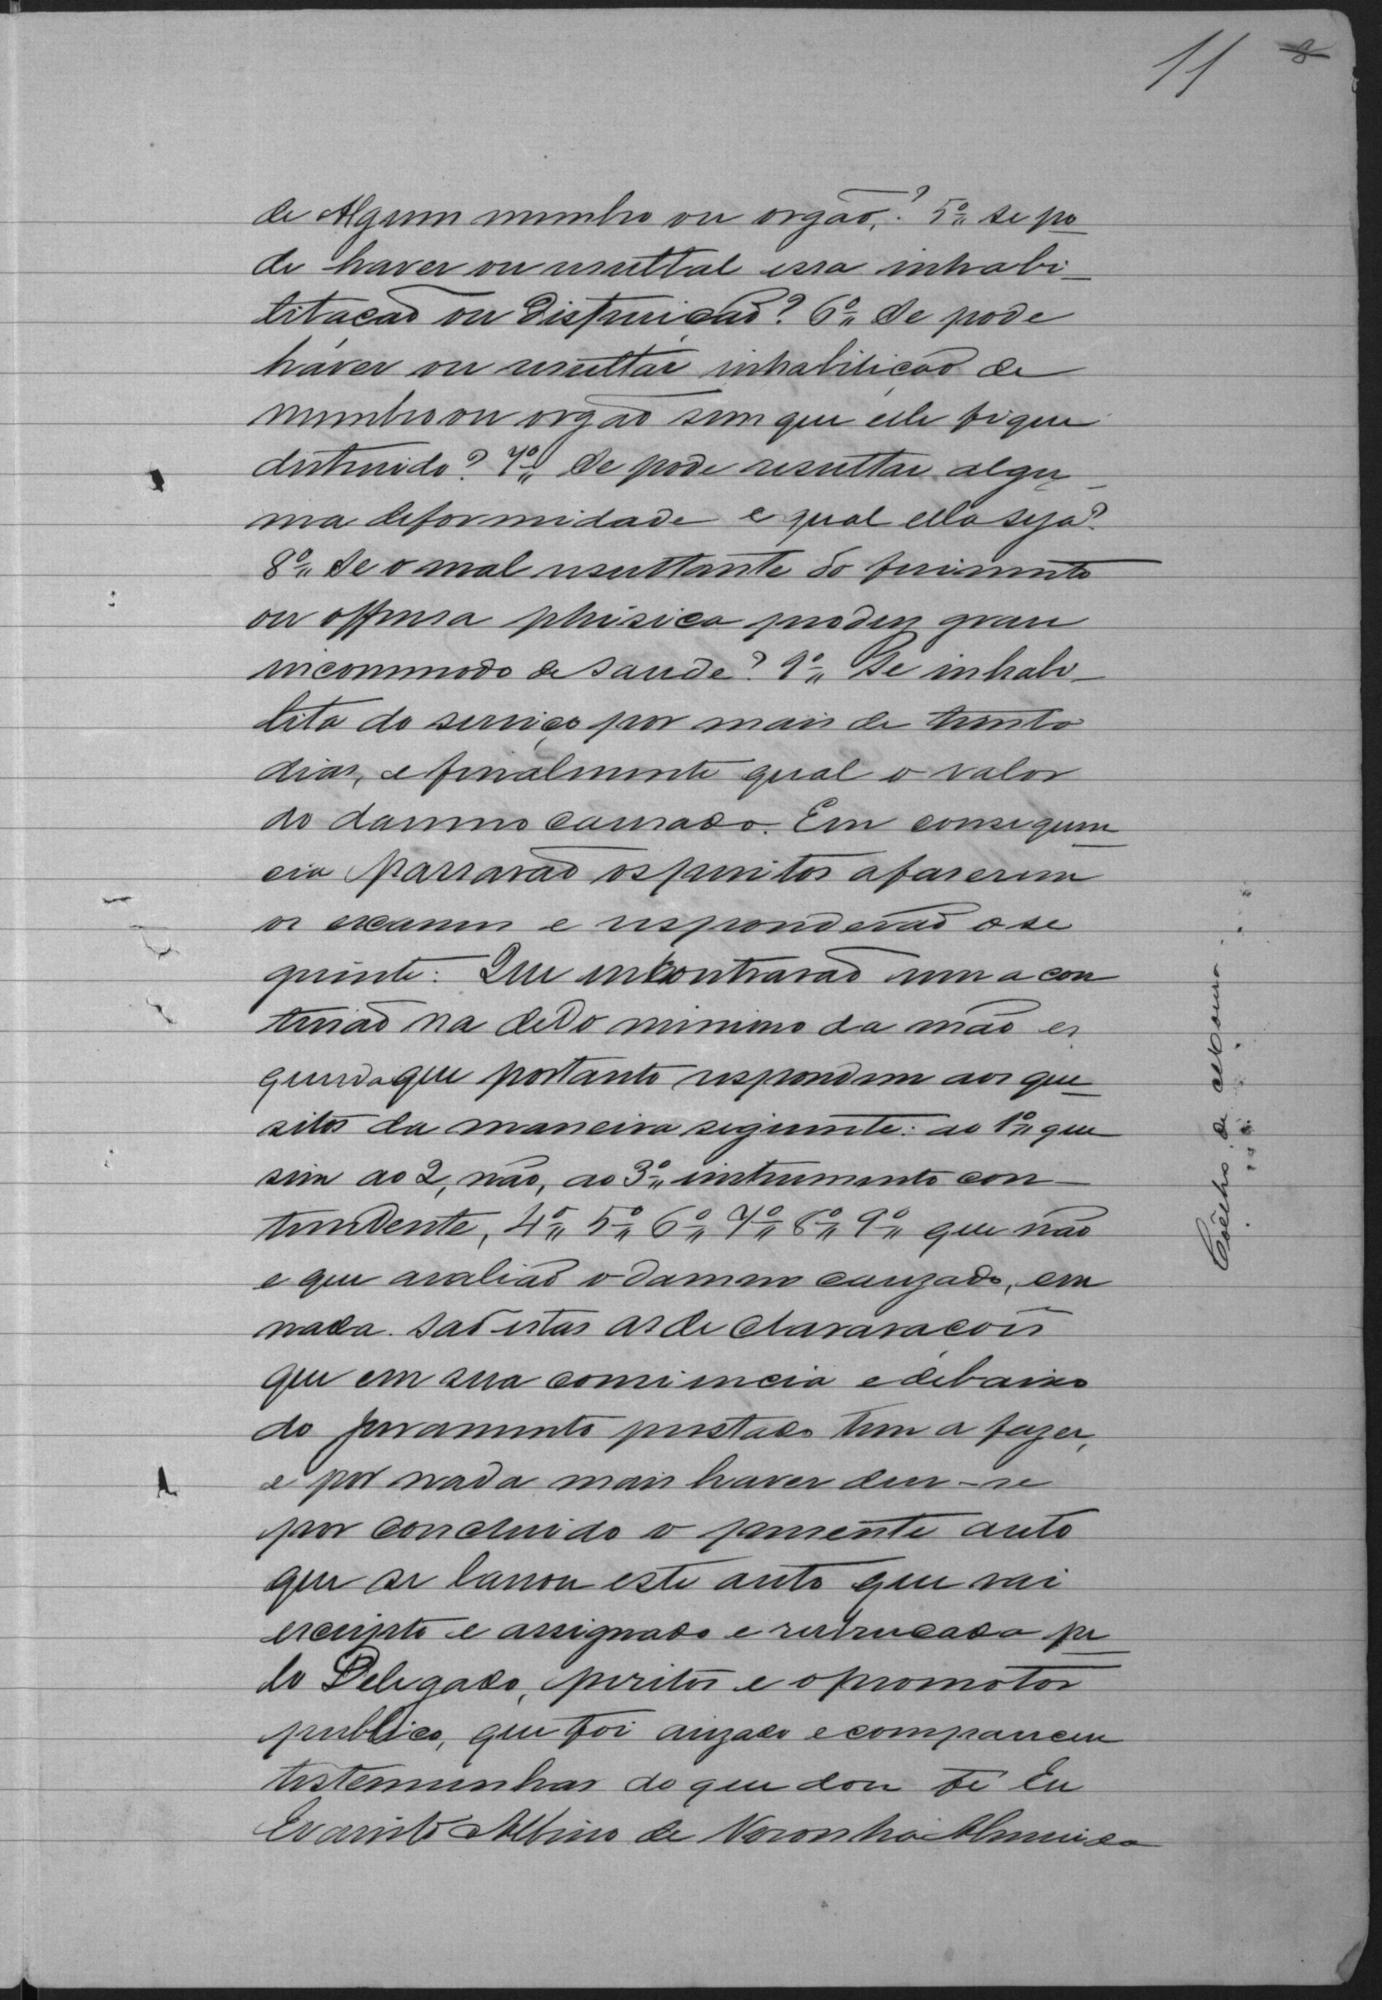 11
de Algum membro ou orgão,? 5º se po
de haver ou resultal essa inhabi-
litacaõ ou Distruicaõ? 6º Se pode
háver ou resultar inhabilicaõ de
membro ou orgaõ sem que elle fique
distruido? 7º Se pode resultar algu-
ma deformidade e qual ella seja?
8º Se o mal resultante do ferimento
ou offensa phisica produz grave
incommodo de saude? 9º Se inhabi-
lita do serviço por mais de trinta
dias, e finalmente qual o valor
do damno causado. Em consequen
cia passaraõ os peritos a faserem
os exames e responderaõ o se
guinte: Que encontraraõ uma con
tusaõ na dedo minimo da mão es
querda que portanto respondem aos que-
sitos da maneira seguinte: ao 1º que
sim ao 2, não, ao 3º instrumento con-
tundente, 4º 5º 6º 7º 8º 9º que não
e que avaliaõ o damno cauzado, em
nada. Saõ estas as de clararacões
que em sua consciencia e debaixo
do juramento prestado tem a fazer,
e por nada mais haver deu-se
por concluido o presente auto
que se lavrou este auto que vai
escripto e assignado e rubrucado pe
lo Delegado, peritos e o promotor
publico, que foi avizado e compareceu
testemunhas do que dou fé Eu
Evaristo Albino de Noronha Almeida
Coêlho de